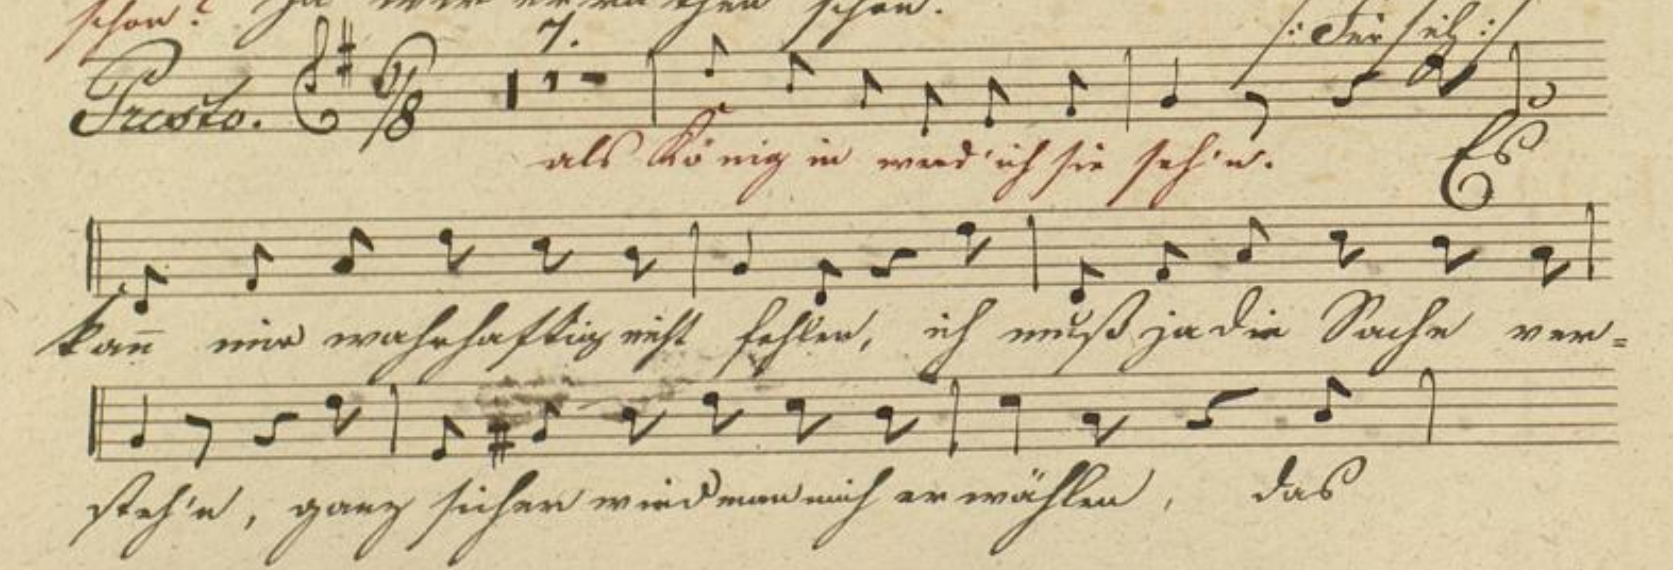 schon? Ja wir errathen schon.
Presto. 6/8 7. /: Für sich :/
als Königin werd' ich sie seh'n. Es
kan̄ mir wahrhaftig nicht fehlen, ich muß ja die Sache ver=
steh'n, ganz sicher wird man mich erwählen, das